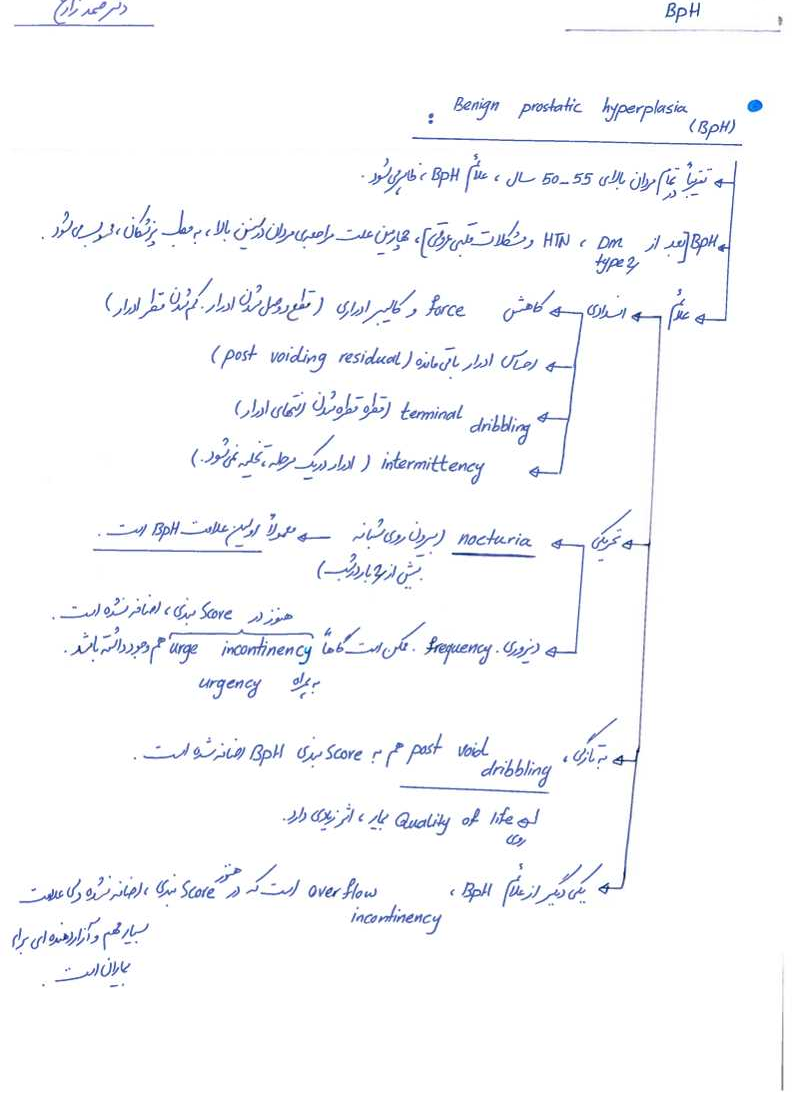 BpH
دکتر صمد زارع
Benign prostatic hyperplasia
(BpH) :
تقریباً در تمام مردان بالای 55-50 سال، علائم BpH، ظاهر می‌شود.
BpH [بعد از HTN ، Dm type 2 و مشکلات قلبی عروقی]، چهارمین علت مراجعه‌ی مردان در سنین بالا، به مطب پزشکان، محسوب می‌شود.
علائم
انسدادی
کاهش force و کالیبر ادراری (قطع و وصل شدن ادرار. کم شدن قطر ادرار)
احساس ادرار باقی مانده (post voiding residual)
terminal dribbling (قطره قطره شدن انتهای ادرار)
intermittency (ادرار در یک مرحله، تخلیه نمی‌شود.)
تحریکی
nocturia (بیرون روی شبانه بیش از 2 بار در شب) معمولاً اولین علامت BpH است.
هنوز در Score بندی، اضافه نشده است.
دیزوری. frequency. ممکن است گاهاً urge incontinency هم وجود داشته باشد.
به همراه urgency
به تازگی، post void dribbling هم به Score بندی BpH اضافه شده است.
روی Quality of life بیمار، اثر زیادی دارد.
یکی دیگر از علائم BpH، overflow incontinency است که هنوز در Score بندی، اضافه نشده ولی علامت
بسیار مهم و آزاردهنده ای برای
بیماران است.